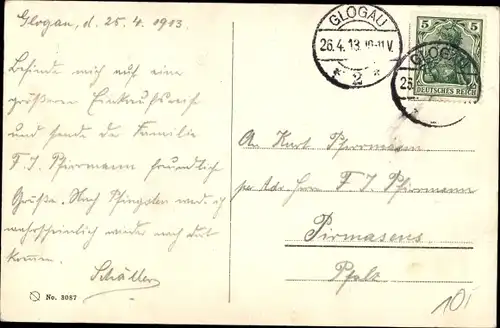 Glogau, d. 25. 4. 1913.
Befinde mich auf eine
größeren Einkaufsreise
und sende der Familie
F. J. Phirrmann freundlich
Grüße. Nach Pfingsten werde ich
wahrscheinlich wieder nach dort
kommen.
Schäller
No. 8087
GLOGAU
26.4.13.10-11V.
* 2 *
5 5
DEUTSCHES REICH
GLOGAU
25.
An Kurt Phirrmann
per Adr. Herrn F J Phirrmann
Pirmasens
Pfalz
10